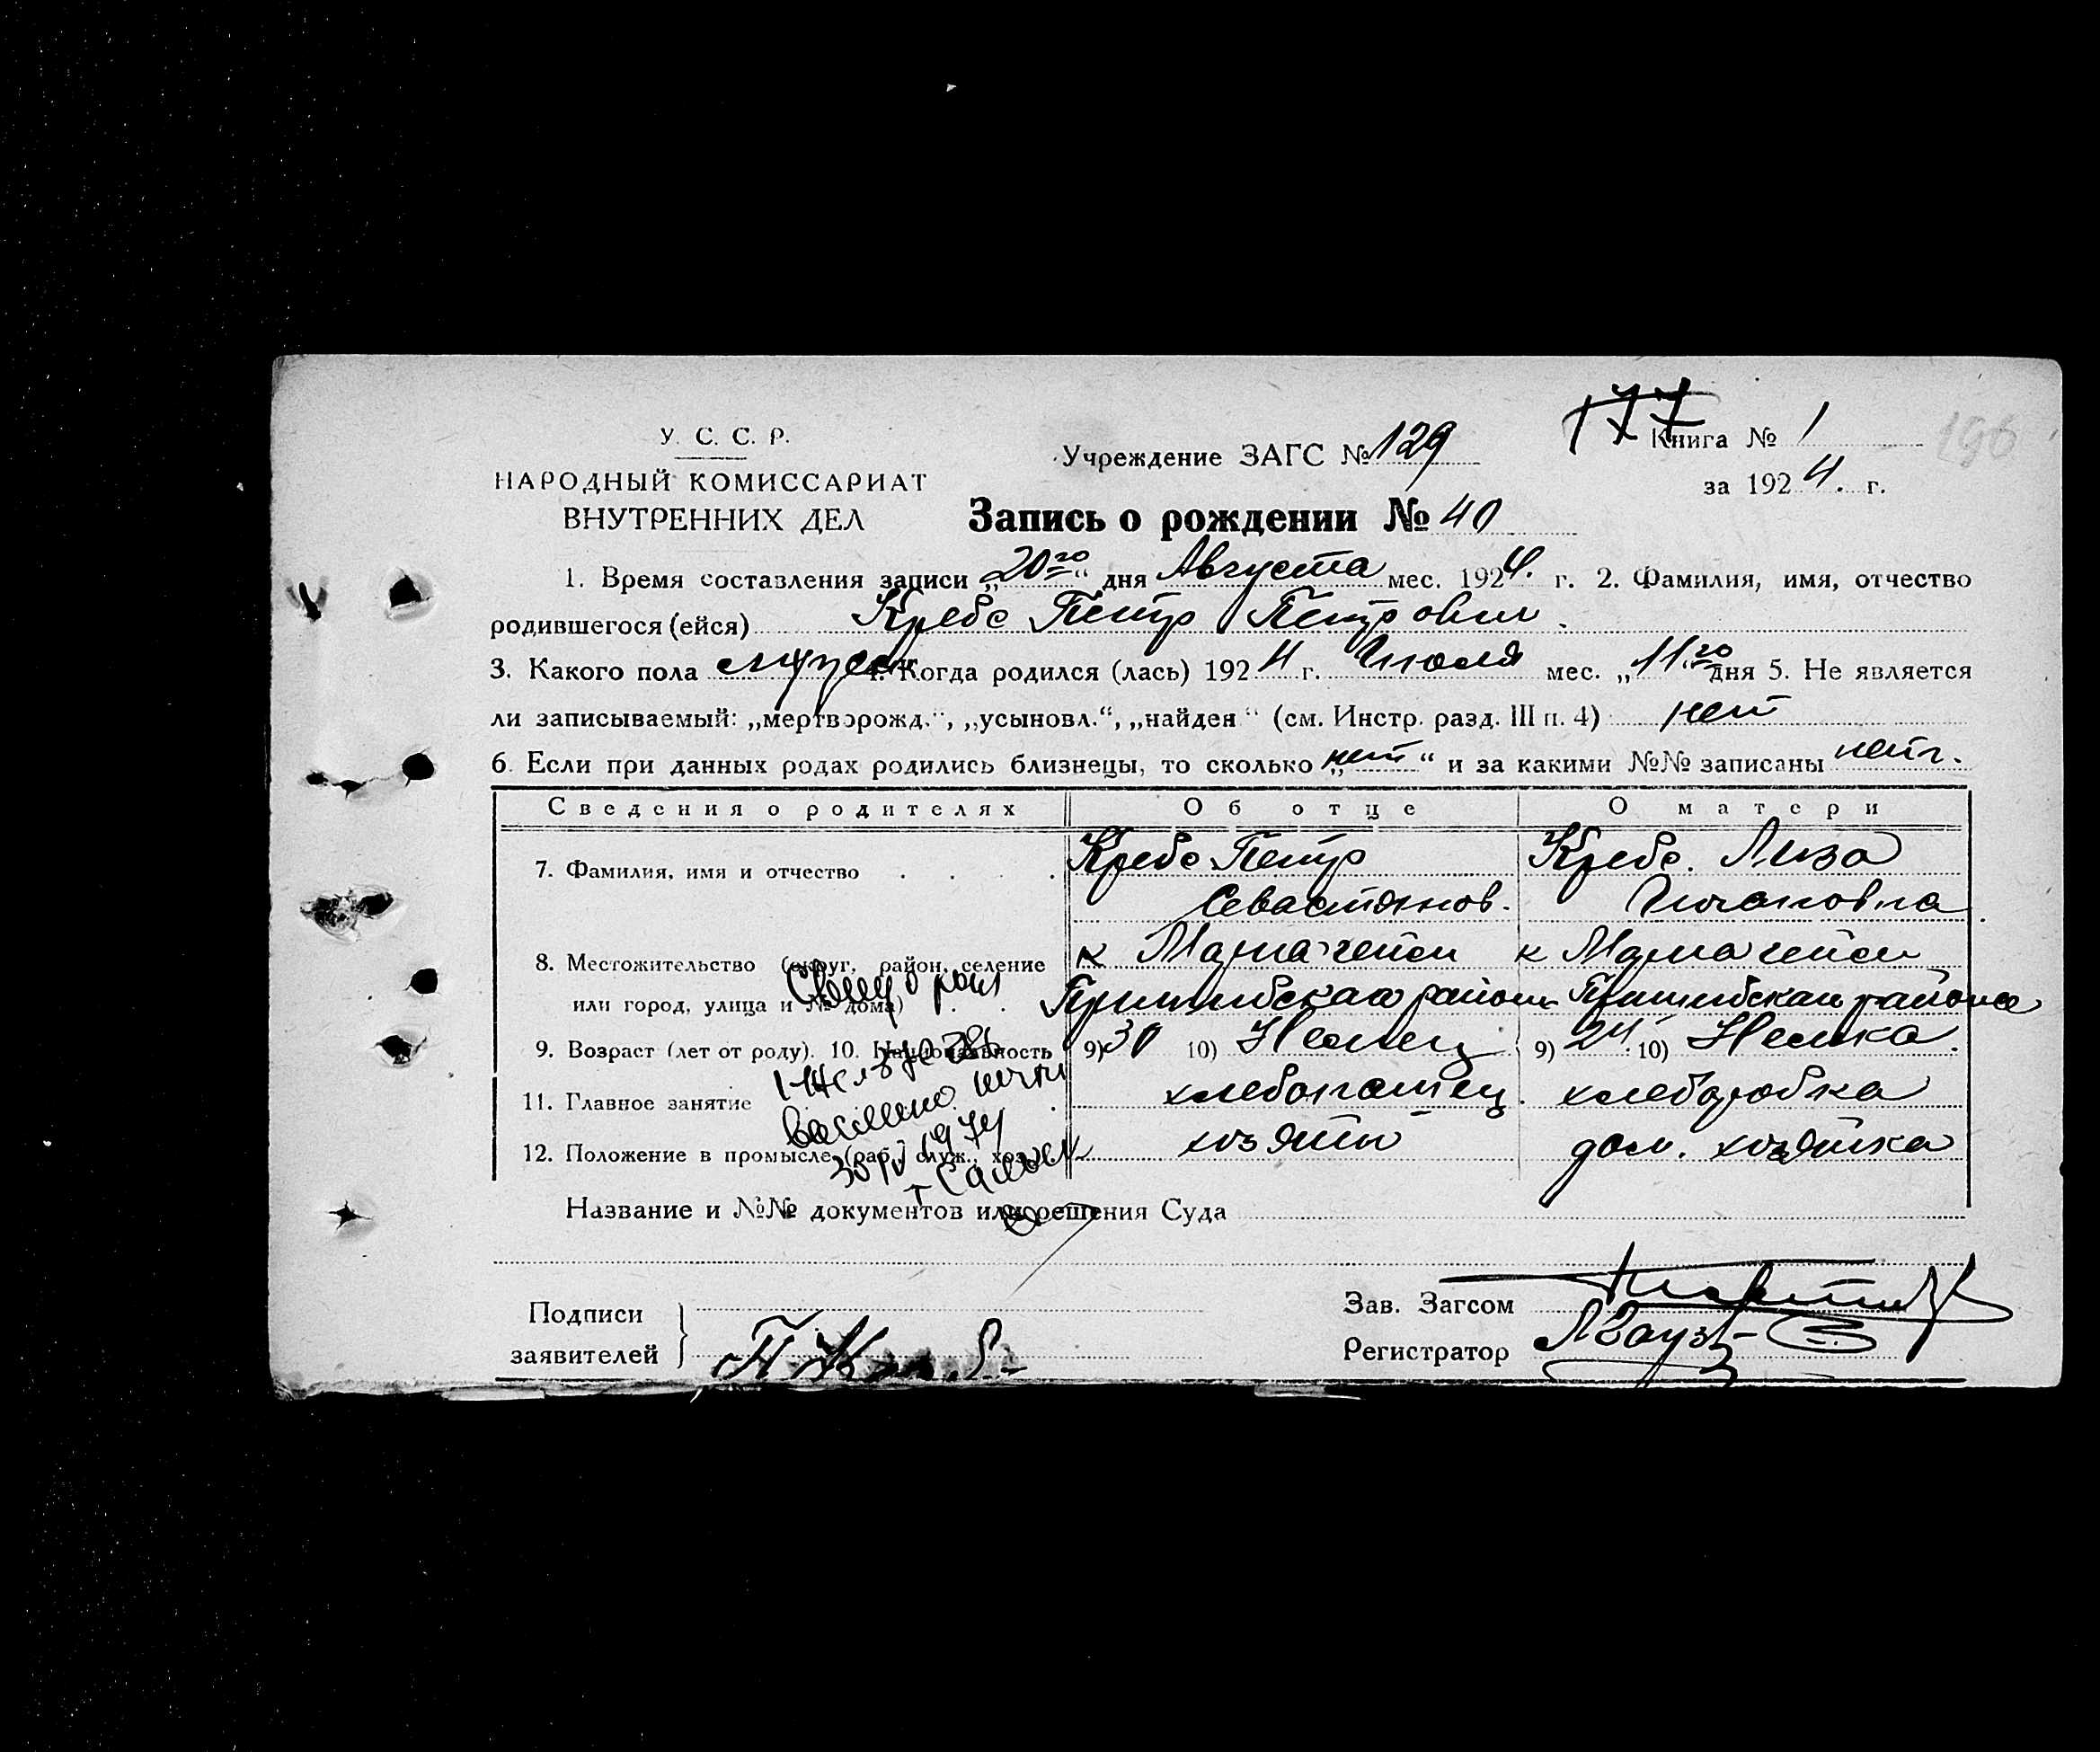 У. С. С. Р.
НАРОДНЫЙ КОМИССАРИАТ
ВНУТРЕННИХ ДЕЛ
Учреждение ЗАГС № 129
177
Книга № 1
196
за 1924. г.
Запись о рождении № 40
1. Время составления записи „20го“ дня Августа мес. 1924. г. 2. Фамилия, имя, отчество
родившегося (ейся) Кребс Петр Петрович.
3. Какого пола мужск 4. Когда родился (лась) 1924 г. Июля мес. „11го дня 5. Не является
ли записываемый: „мертворожд.“, „усыновл.“, „найден“ (см. Инстр. разд. III п. 4) нет
6. Если при данных родах родились близнецы, то сколько „нет“ и за какими №№ записаны нет.
Сведения о родителях Об отце О матери
7. Фамилия, имя и отчество Кребс Петр Кребс. Лиза
Севастянов.
8. Местожительство (округ, район, селение к к
или город, улица и № дома) Пришибская район Пришибская района
9. Возраст (лет от роду). 10. Национальность 9) 30 10) Немец 9) 24 10) Немка.
11. Главное занятие хлебопашец. хлеборобка
12. Положение в промысле (раб., служ., хоз.) хозяин дом. хозяйка
1974
Название и №№ документов или решения Суда
Подписи
заявителей
Зав. Загсом
Регистратор